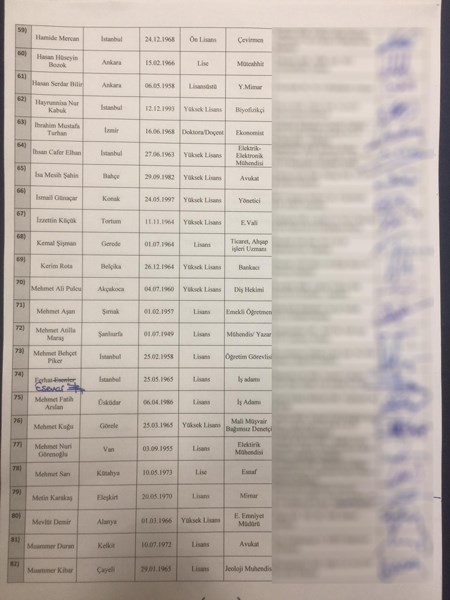 59) Hamide Mercan İstanbul 24.12.1968 Ön Lisans Çevirmen
60) Hasan Hüseyin Bozok Ankara 15.02.1966 Lise Müteahhit
61) Hasan Serdar Bilir Ankara 06.05.1958 Lisansüstü Y.Mimar
62) Hayrunnisa Nur Kabuk İstanbul 12.12.1993 Yüksek Lisans Biyofizikçi
63) İbrahim Mustafa Turhan İzmir 16.06.1968 Doktora/Doçent Ekonomist
64) İhsan Cafer Elhan İstanbul 27.06.1963 Yüksek Lisans Elektrik-Elektronik Mühendisi
65) İsa Mesih Şahin Bahçe 29.09.1982 Yüksek Lisans Avukat
66) İsmail Günaçar Konak 24.05.1997 Yüksek Lisans Yönetici
67) İzzettin Küçük Tortum 11.11.1964 Yüksek Lisans E.Vali
68) Kemal Şişman Gerede 01.07.1964 Lisans Ticaret, Ahşap işleri Uzmanı
69) Kerim Rota Belçika 26.12.1964 Yüksek Lisans Bankacı
70) Mehmet Ali Pulcu Akçakoca 04.07.1960 Yüksek Lisans Diş Hekimi
71) Mehmet Aşan Şırnak 01.02.1957 Lisans Emekli Öğretmen
72) Mehmet Atilla Maraş Şanlıurfa 01.07.1949 Lisans Mühendis/ Yazar
73) Mehmet Behçet Piker İstanbul 25.02.1958 Lisans Öğretim Görevlisi
74) İstanbul 25.05.1965 Lisans İş adamı
75) Mehmet Fatih Arslan Üsküdar 06.04.1986 Lisans İş Adamı
76) Mehmet Kuğu Görele 25.03.1965 Yüksek Lisans Mali Müşvair Bağımsız Denetçi
77) Mehmet Nuri Van 03.09.1955 Lisans Elektirik Mühendisi
78) Mehmet Sarı Kütahya 10.05.1973 Lise Esnaf
79) Metin Karakaş Eleşkirt 20.05.1970 Lisans Mimar
80) Mevlüt Demir Alanya 01.03.1966 Yüksek Lisans E. Emniyet Müdürü
81) Muammer Duran Kelkit 10.07.1972 Lisans Avukat
82) Muammer Kibar Çayeli 29.01.1965 Lisans Jeoloji Muhendis